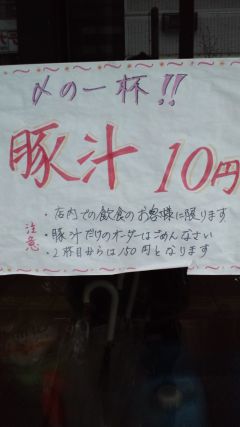 〆の一杯!!
豚汁 10円
注意
・店内での飲食のお客様に限ります
・豚汁だけのオーダーはごめんなさい
・2杯目からは150円となります